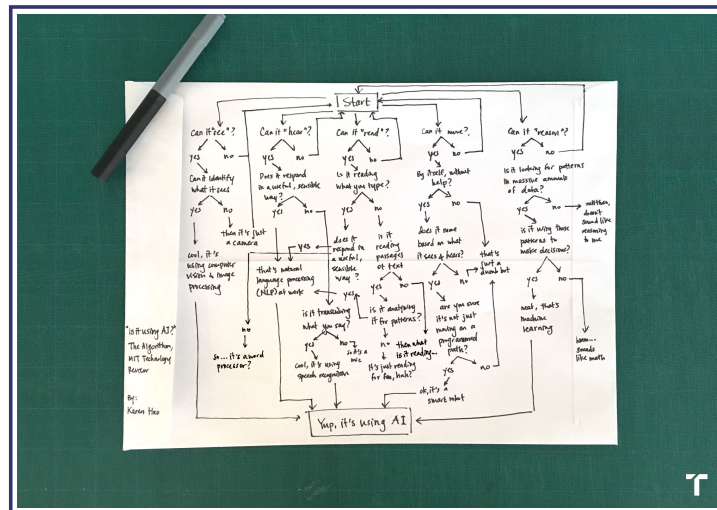 Start
Can it "see"?
yes
no
Can it identify
what it sees
yes
no
then it's just
a camera
cool, it's
using computer
vision & image
processing
Can it "hear"?
yes
no
Does it respond
in a useful, sensible
way?
yes
no
that's natural
language processing
(NLP) at work
is it transcribing
what you say?
yes
no
so it's a
mic
cool, it's using
speech recognition
Can it "read"?
yes
no
Is it reading
what you type?
yes
no
does it
respond in
a useful,
sensible
way?
yes
no
so... it's a word
processor?
is it
reading
passages
of text
yes
no
then what
is it reading...
is it analyzing
it for patterns?
yes
no
it's just reading
for fun, huh?
Can it move?
yes
no
By itself, without
help?
yes
no
does it move
based on what
it sees & hears?
yes
no
that's
just a
dumb bot
are you sure
it's not just
moving on a
programmed
path?
yes
no
ok, it's a
smart robot
Can it "reason"?
yes
no
Is it looking for patterns
in massive amounts
of data?
yes
no
then,
doesn't
sound like
reasoning
to me
is it using those
patterns to
make decisions?
yes
no
neat, that's
machine
learning
sounds
like math
Yup, it's using AI
"Is it using AI?"
The Algorithm,
MIT Technology
Review
By:
Karen Hao